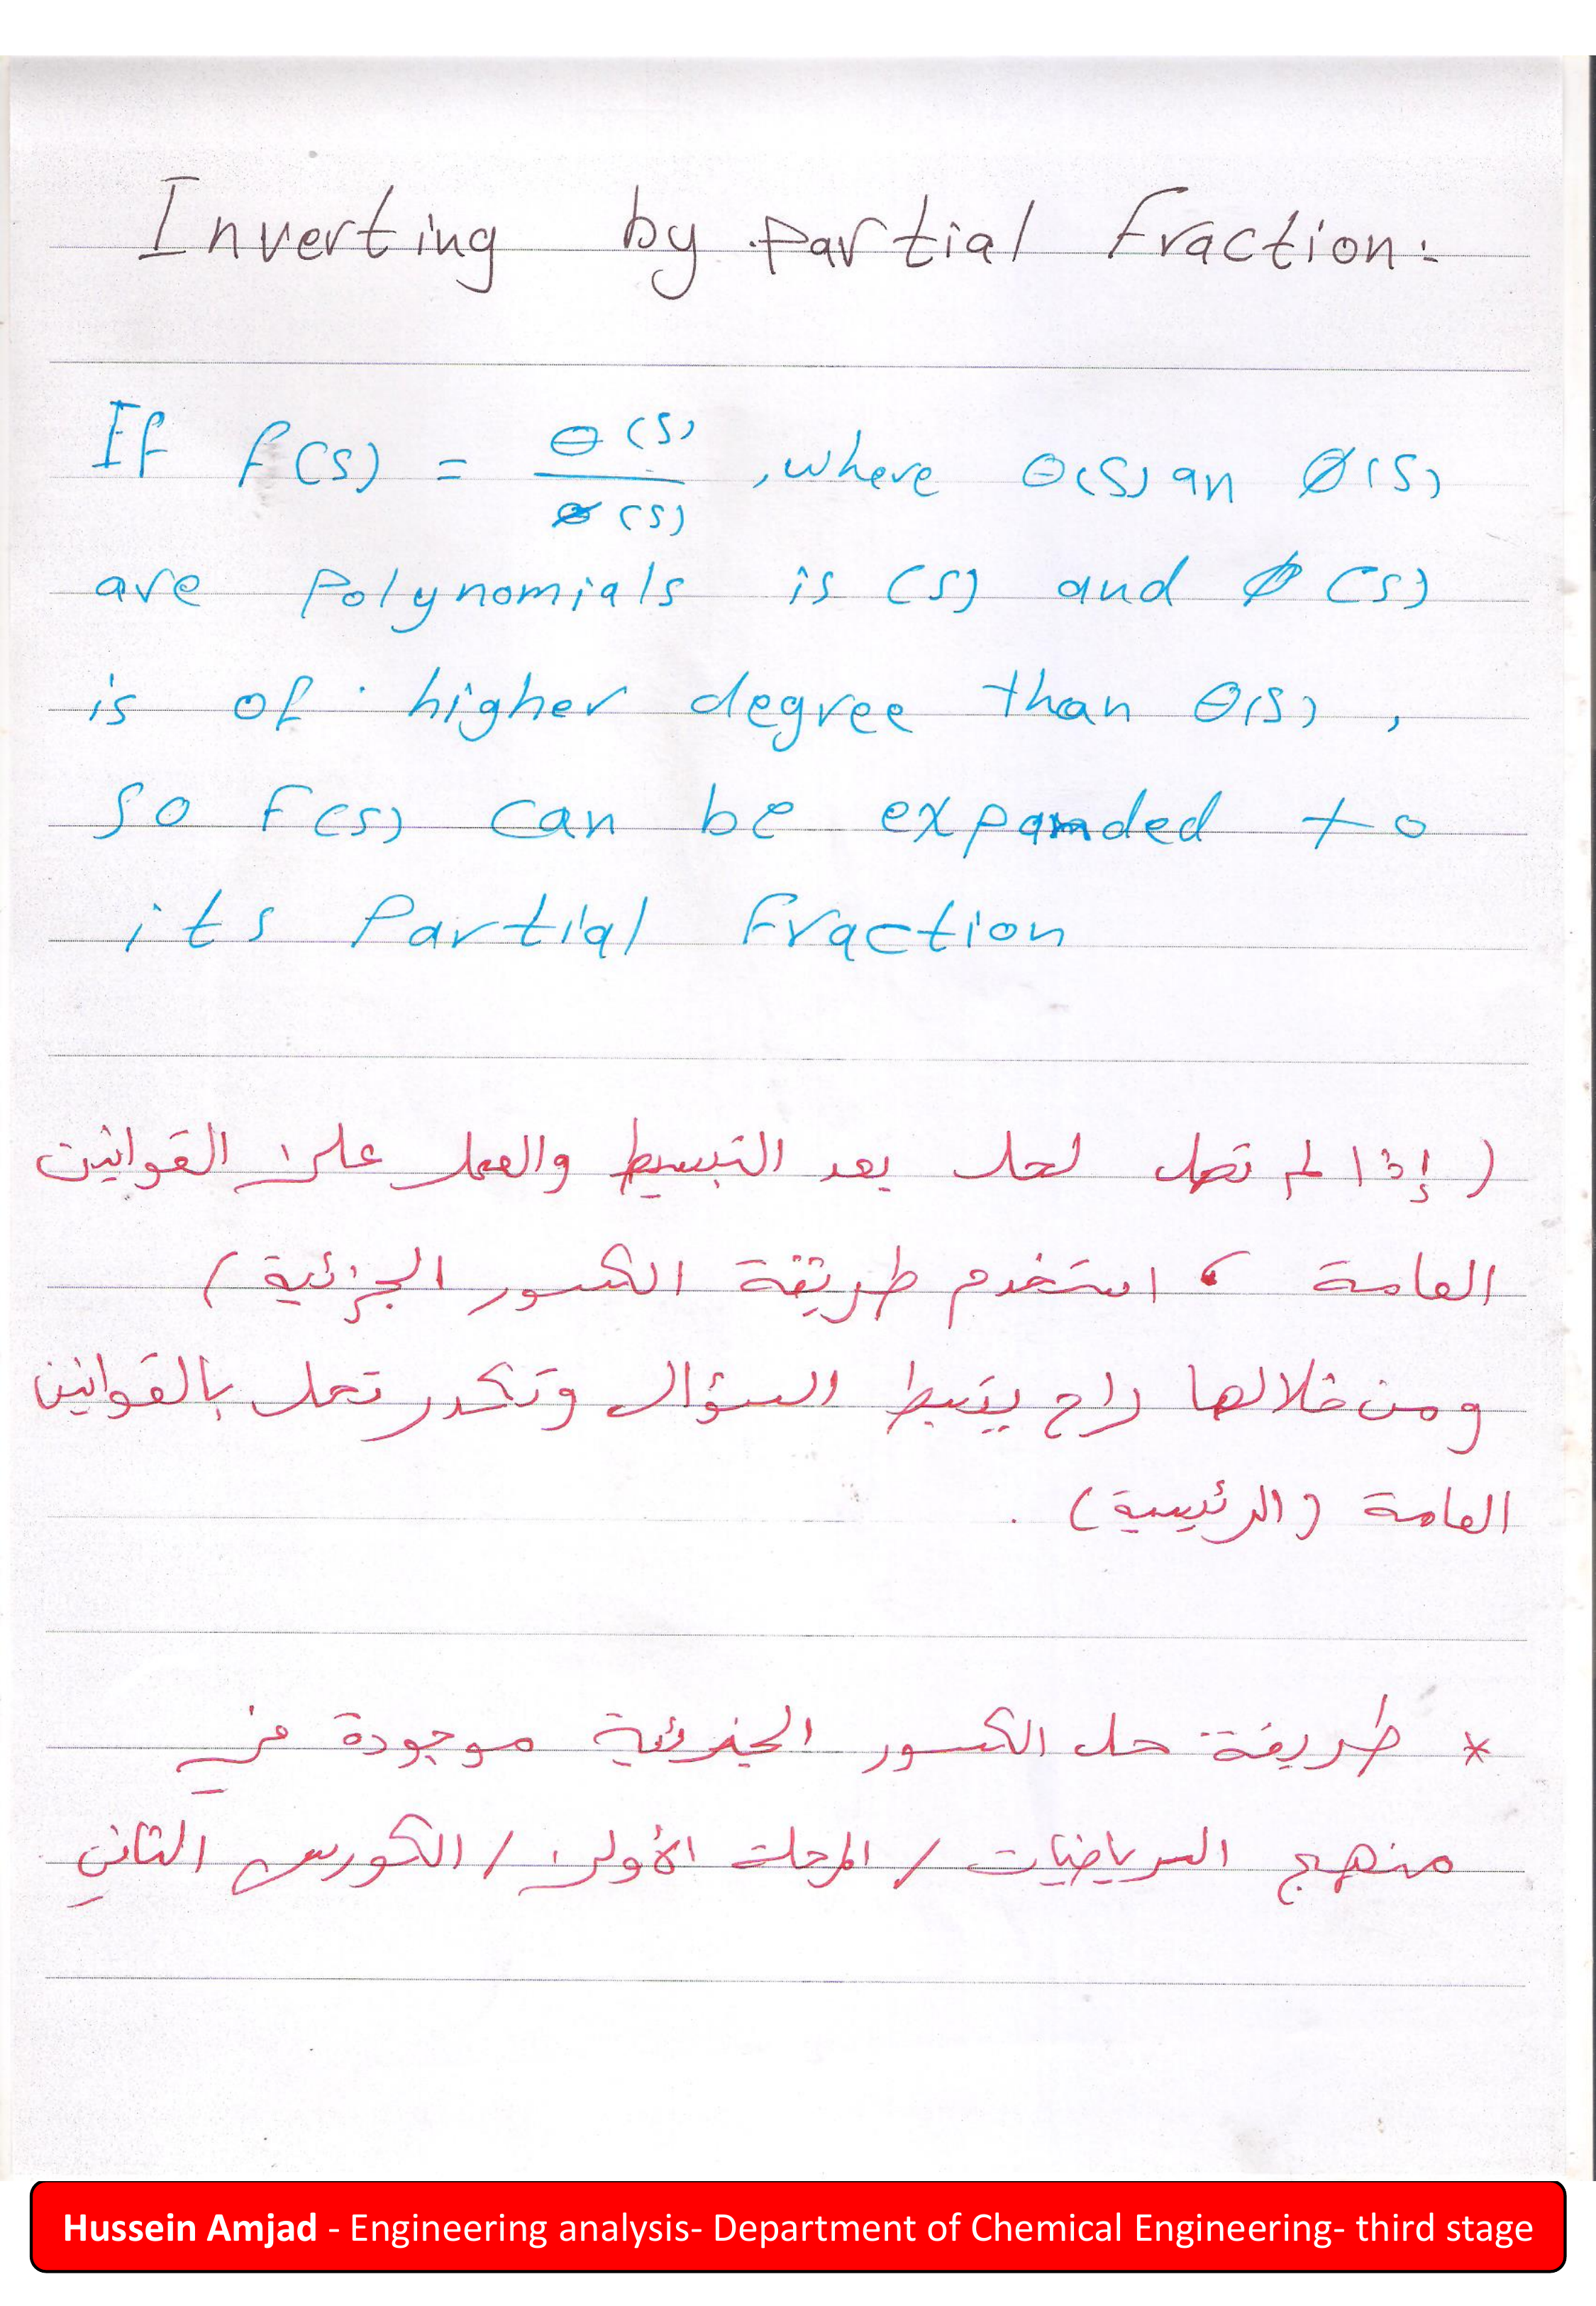 Inverting by partial fraction:
If f(s) = θ(s) / ø(s) , where θ(s) an Ø(s)
are polynomials is (s) and Ø(s)
is of higher degree than θ(s) ,
so F(s) can be expanded to
its Partial Fraction
( إذا لم تصل لحل بعد التبسيط والعمل على القوانين
العامة ، استخدم طريقة الكسور الجزئية )
ومن خلالها راح يتبسط السؤال وتكدر تحل بالقوانين
العامة ( الرئيسية ) .
* طريقة حل الكسور الجزئية موجودة في
منهج الرياضيات / المرحلة الأولى / الكورس الثاني
Hussein Amjad - Engineering analysis- Department of Chemical Engineering- third stage